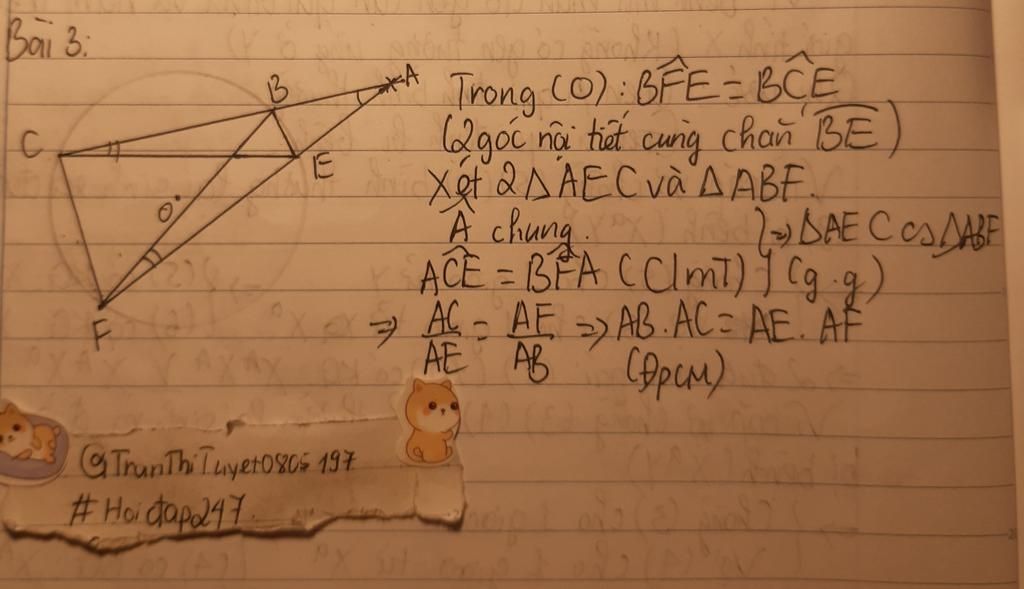 Bài 3:
B
A
C
E
O
F
Trong (O): BF̂E = BĈE
(2 góc nội tiết cùng chắn BE)
Xét 2 Δ AEC và Δ ABF.
Â chung.
} => Δ AEC ∽ Δ ABF
AĈE = BF̂A (ClmT) } (g.g)
=> AC/AE = AF/AB => AB. AC = AE. AF
(ĐpcM)
@TranThiTuyet0805197
#Hoidap247.